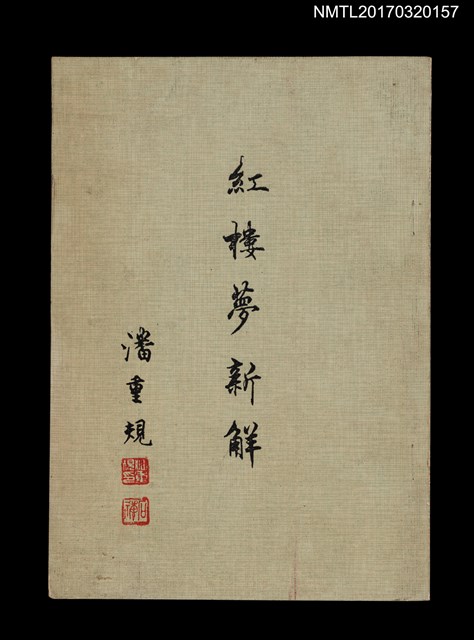 NMTL20170320157
紅樓夢新解
潘重規